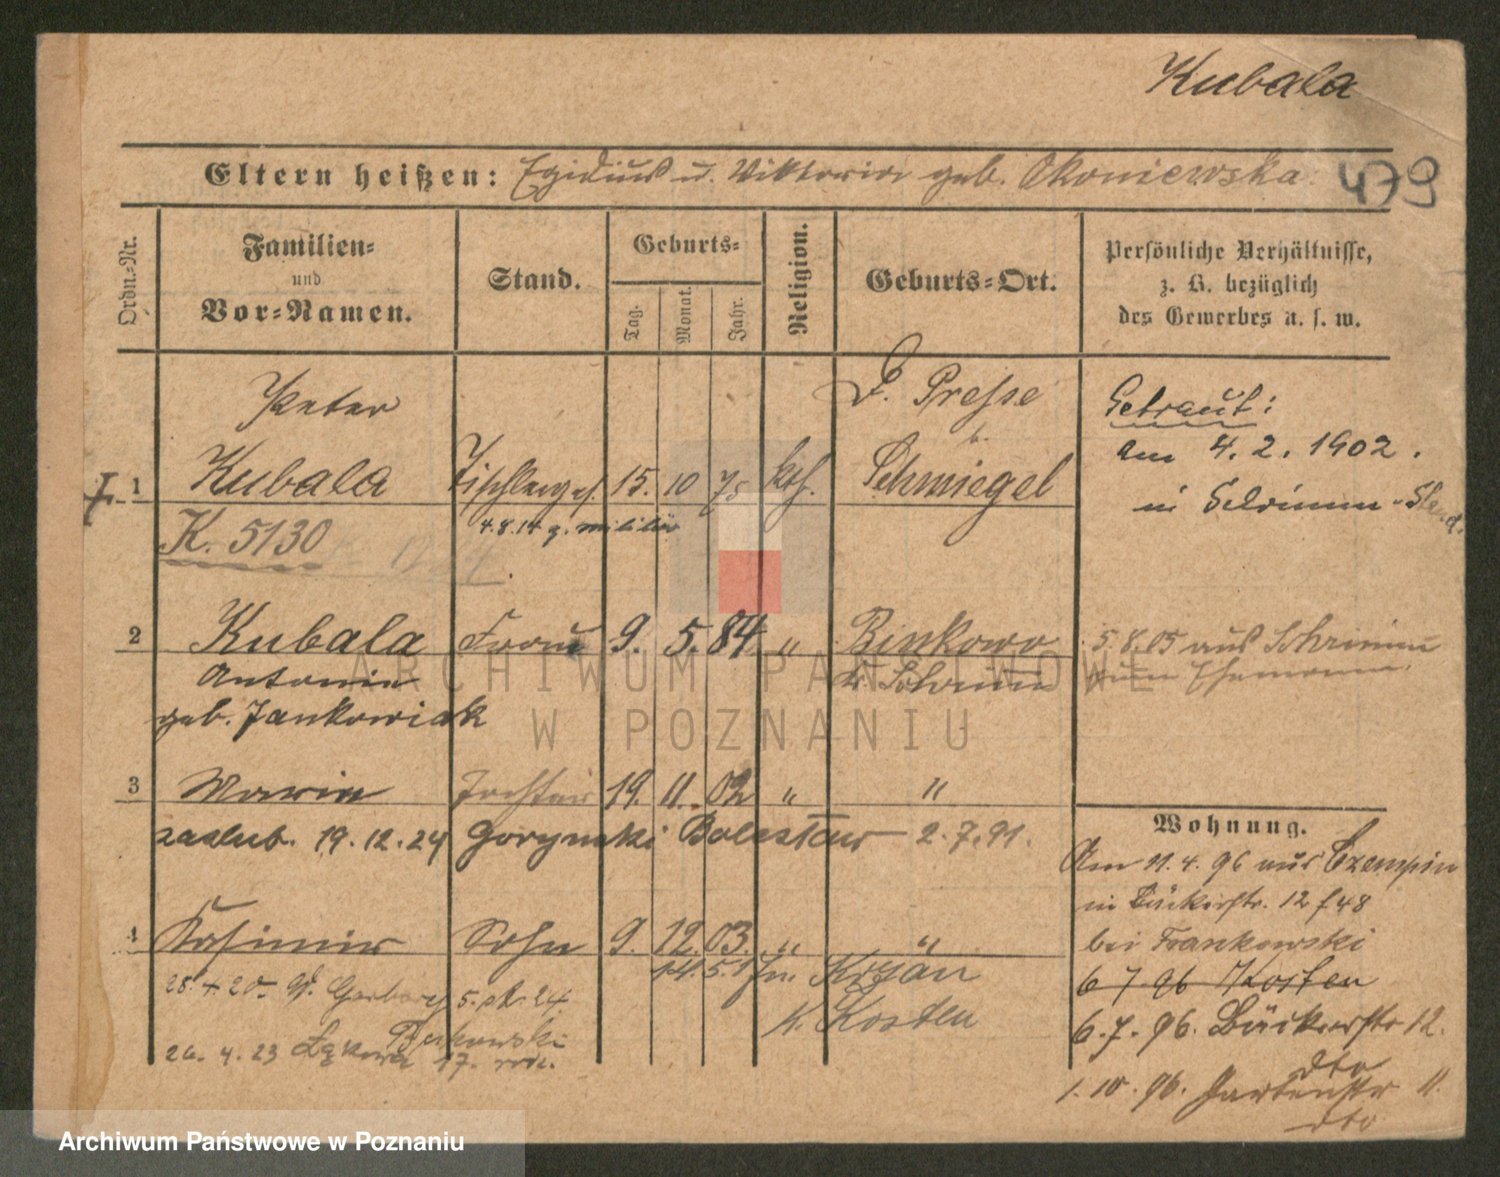 Kubala
Eltern heißen: Egidius u. Viktoria geb. Okoniewska.
479
Ordn.-Nr.
Familien-
und
Vor-Namen.
Stand.
Geburts-
Tag.
Monat.
Jahr.
Religion.
Geburts-Ort.
Persönliche Verhältnisse,
z. B. bezüglich
des Gewerbes u. s. w.
Peter
1 Kubala Tischlerges. 15. 10 75 kth.
D. Presse
Schmiegel
Getraut:
am 4. 2. 1902.
in Schrimm - Stand.
4.8.14 z. militär
K. 5130
2 Kubala Frau 9. 5. 84 " Binkowo
Antonie
geb. Jankowiak
k. Schrimm
5.8.05 aus Schrimm
zum Ehemann.
3 Maria Tochter 19. 11. 02 " "
zaślub. 19.12.24 Gorynski Bolesław 2.7.91.
4 Kasimir Sohn 9. 12. 03. " "
14.5. Krzan
K. Kosten
28.4.20 W. Garbary 5. 24
Bukowski
26. 4. 23 Łąkowa 17.
Wohnung.
Am 11.4.96 aus Czempin
in Bäckerstr. 12 f 48
bei Frankowski
6 7. 96 Kosten
6.7.96. Bäckerstr 12.
dto
1.10.96. Gartenstr 11.
dto
ARCHIWUM PAŃSTWOWE
W POZNANIU
Archiwum Państwowe w Poznaniu